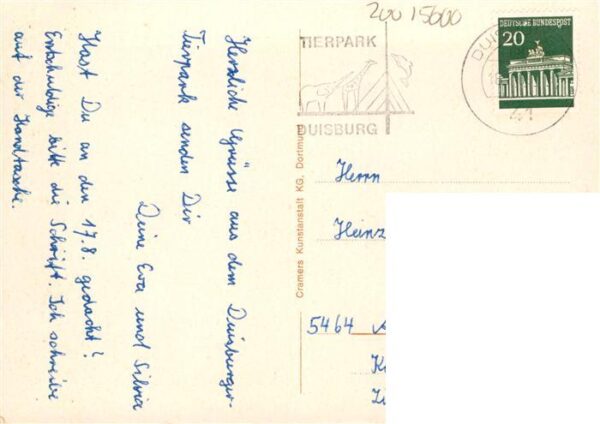 Herzliche Grüsse aus dem Duisburger-
Tierpark senden Dir
Deine Eva und Silvia
Hast Du an den 17.8. gedacht?
Entschuldige bitte die Schrift. Ich schreibe
auf der Handtasche.
Cramers Kunstanstalt KG, Dortmund
200 15600
TIERPARK
DUISBURG
DEUTSCHE BUNDESPOST
20
DUI
41
Herrn
Heinz
5464